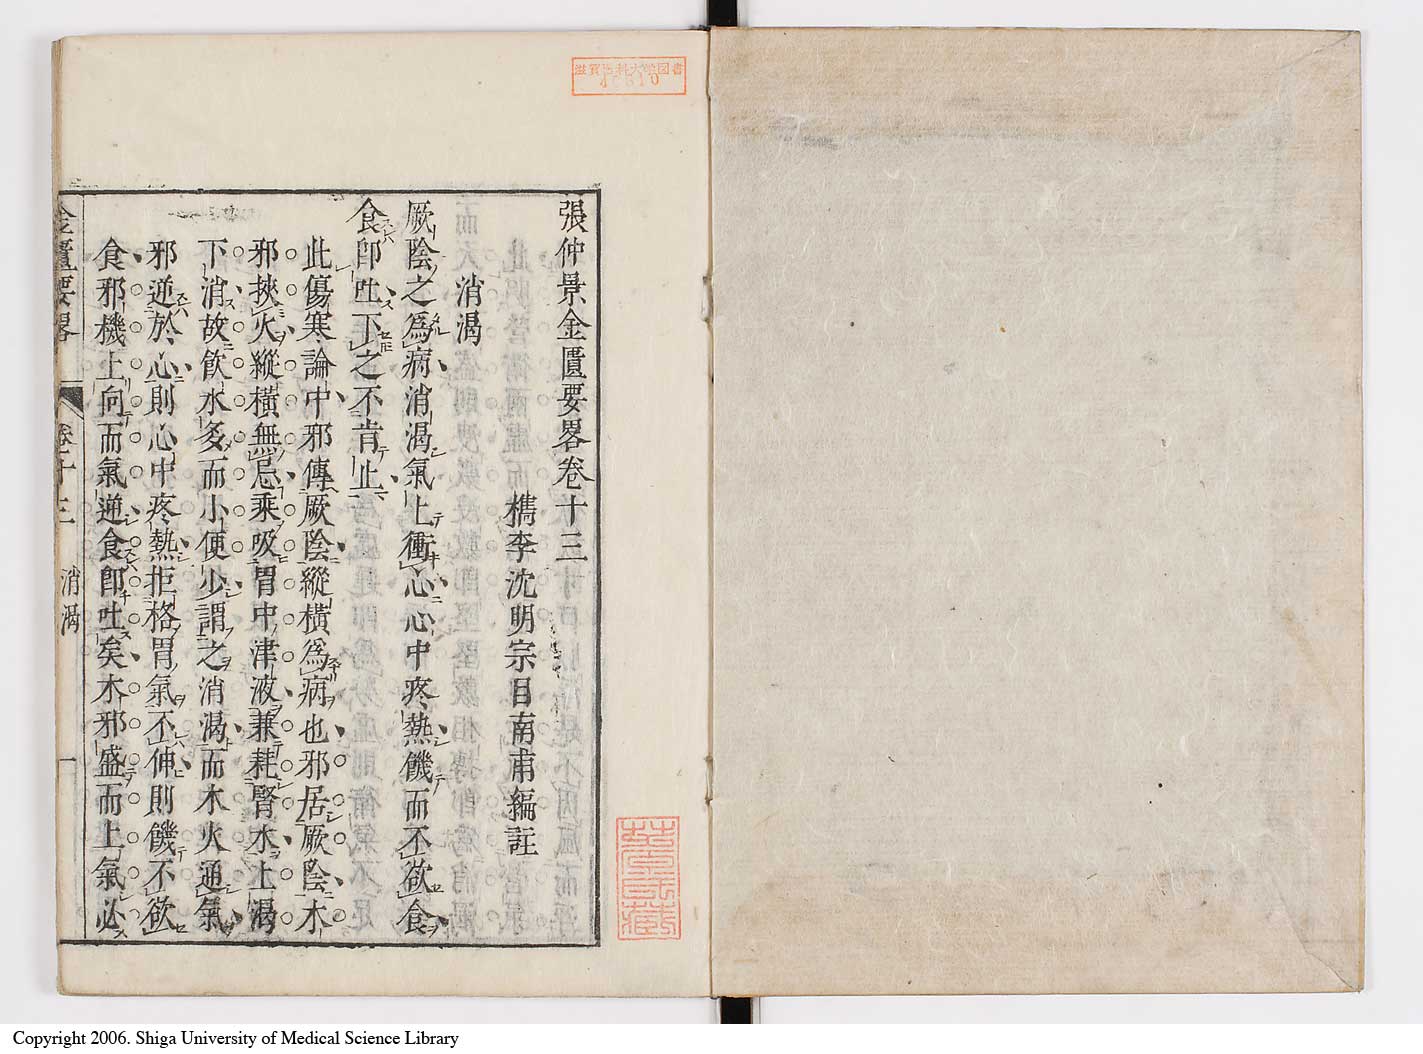 張仲景金匱要畧卷十三
檇李沈明宗目南甫編註
消渴
厥陰之爲病消渴氣上衝心心中疼熱饑而不欲食
食卽吐下之不肯止
此傷寒論中邪傳厥陰縱橫爲病也邪居厥陰木
邪挾火縱橫無忌乘吸胃中津液兼耗腎水上渴
下消故飮水多而小便少謂之消渴而木火通氣
邪逆於心則心中疼熱拒格胃氣不伸則饑不欲
食邪機上向而氣逆食卽吐矣木邪盛而上氣必
金匱要畧 卷十三 消渴 一
滋賀医科大学図書
Copyright 2006. Shiga University of Medical Science Library